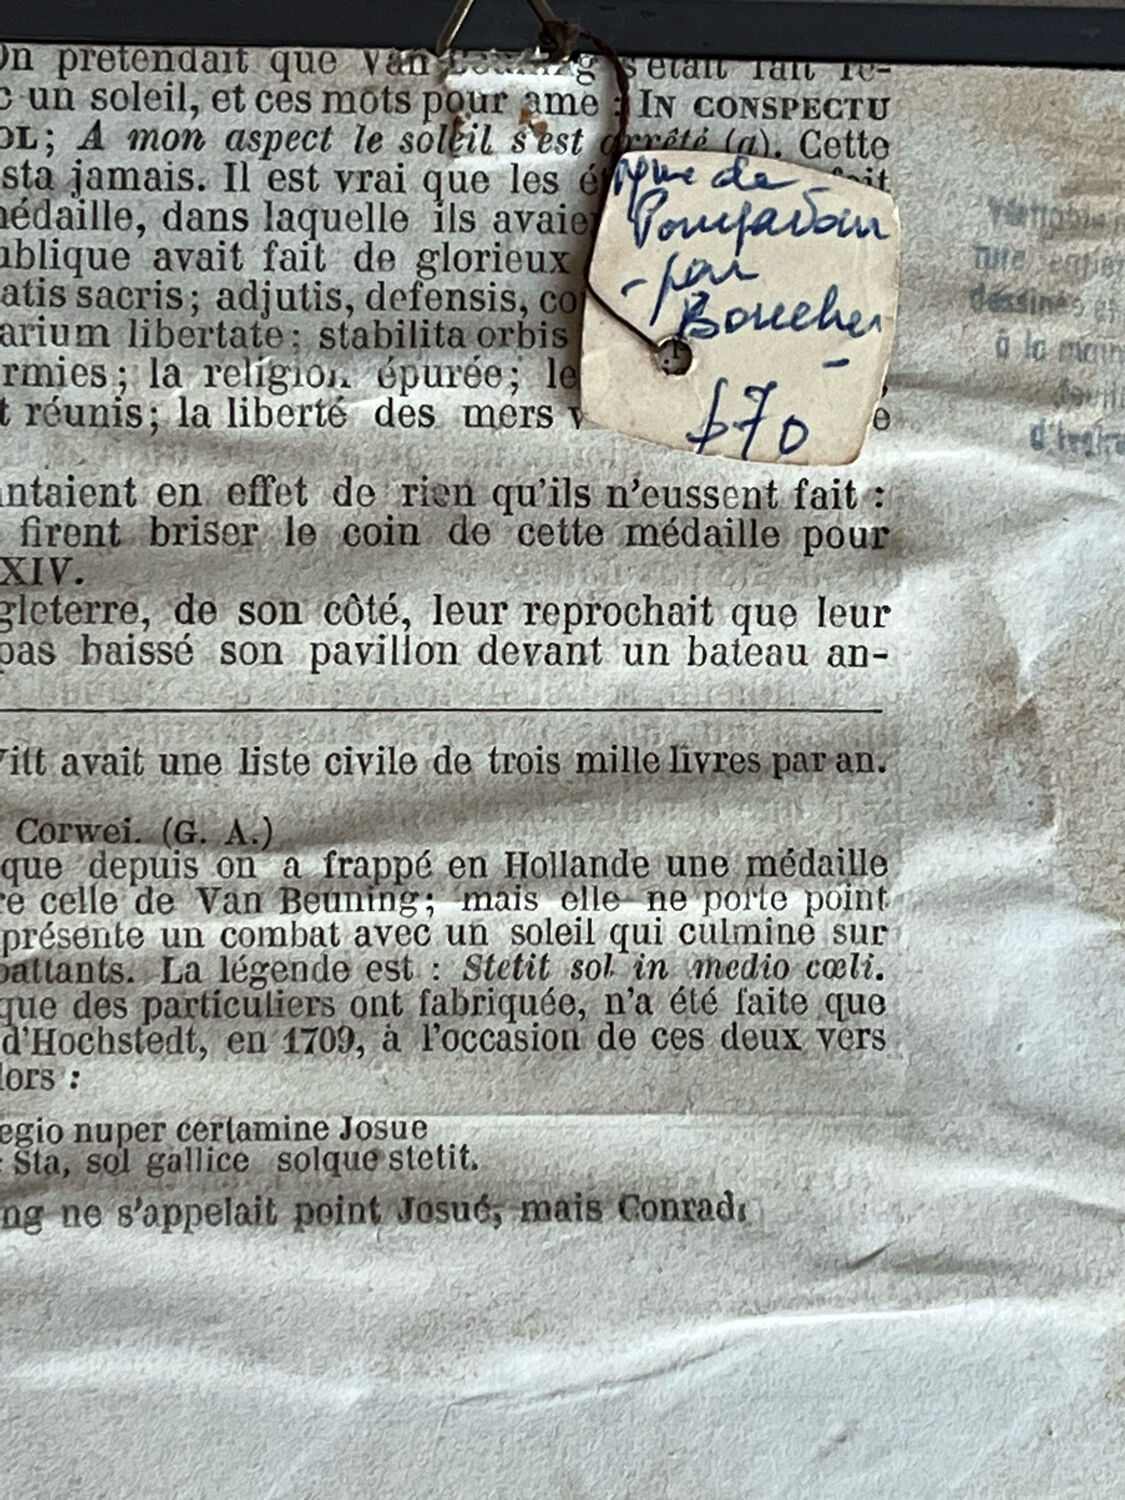 On pretendait que Van Beuning s'était fait re-
c un soleil, et ces mots pour ame : IN CONSPECTU
OL; A mon aspect le soleil s'est arrêté (a). Cette
sta jamais. Il est vrai que les ét fait
médaille, dans laquelle ils avaie
ublique avait fait de glorieux
atis sacris; adjutis, defensis, co
arium libertate; stabilita orbis
rmies; la religion épurée; le
t réunis; la liberté des mers v e
ntaient en effet de rien qu'ils n'eussent fait :
firent briser le coin de cette médaille pour
XIV.
gleterre, de son côté, leur reprochait que leur
pas baissé son pavillon devant un bateau an-
Witt avait une liste civile de trois mille livres par an.
Corwei. (G. A.)
que depuis on a frappé en Hollande une médaille
re celle de Van Beuning; mais elle ne porte point
présente un combat avec un soleil qui culmine sur
battants. La légende est : Stetit sol in medio cœli.
que des particuliers ont fabriquée, n'a été faite que
d'Hochstedt, en 1709, à l'occasion de ces deux vers
lors :
egio nuper certamine Josue
: Sta, sol gallice solque stetit.
ng ne s'appelait point Josué, mais Conrad.
Mme de
Pompadour
- par
Boucher
-
$70
Véritable
ture entier
dessinés et
à la main
feuill
d'ivoire